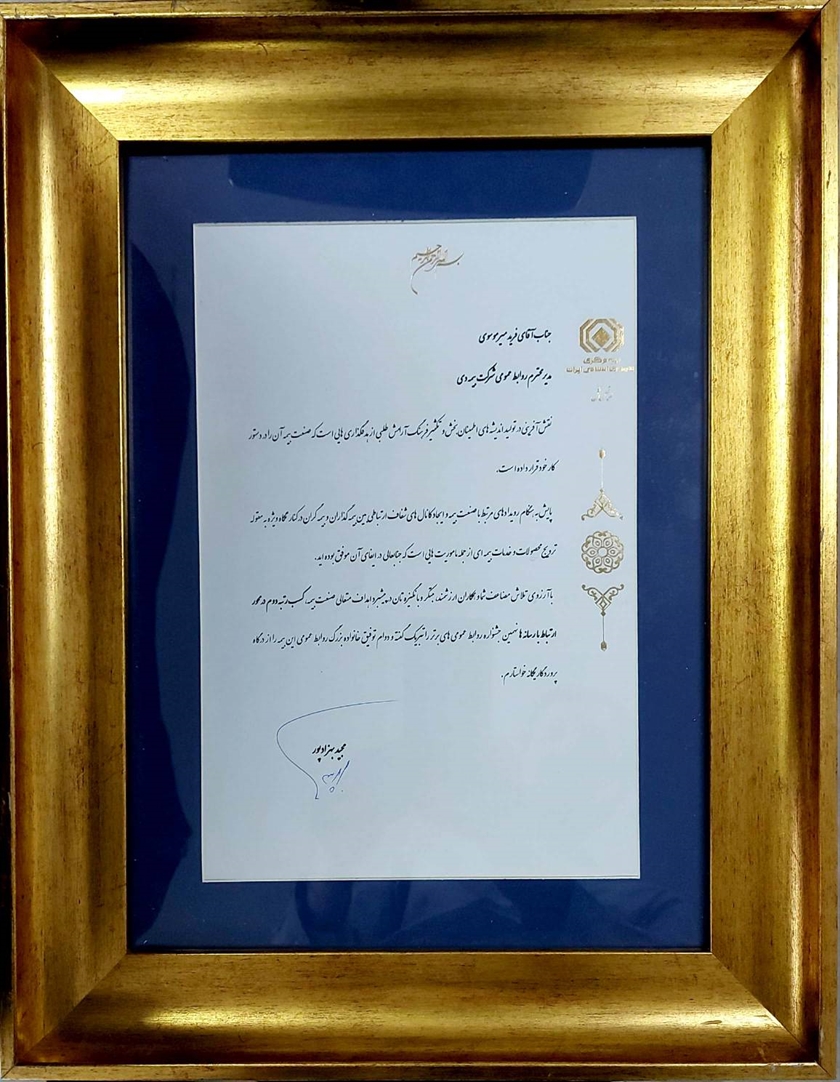 بسم الله الرحمن الرحیم
بیمه مرکزی
جمهوری اسلامی ایران
جناب آقای فرید میرموسوی
مدیر محترم روابط عمومی شرکت بیمه دی
نقش آفرینی در تولید اندیشه های اطمینان بخش و تکثیر فرهنگ آرامش طلبی از هدفگذاری هایی است که صنعت بیمه آن را در دستور
کار خود قرار داده است.
پایش به هنگام رویدادهای مرتبط با صنعت بیمه و ایجاد کانال های شفاف ارتباطی بین بیمه گذاران و بیمه گران در کنار نگاه ویژه به مقوله
ترویج محصولات و خدمات بیمه ای از جمله ماموریت هایی است که جنابعالی در ایفای آن موفق بوده اید.
با آرزوی تلاش مضاعف شما و همکاران ارزشمند، مبتکر و با انگیزه تان در پیشبرد اهداف متعالی صنعت بیمه، کسب رتبه دوم در محور
ارتباط با رسانه ها نهمین جشنواره روابط عمومی های برتر را تبریک گفته و دوام توفیق خانواده بزرگ روابط عمومی این بیمه را از درگاه
پروردگار یگانه خواستارم.
مجید بهزادپور